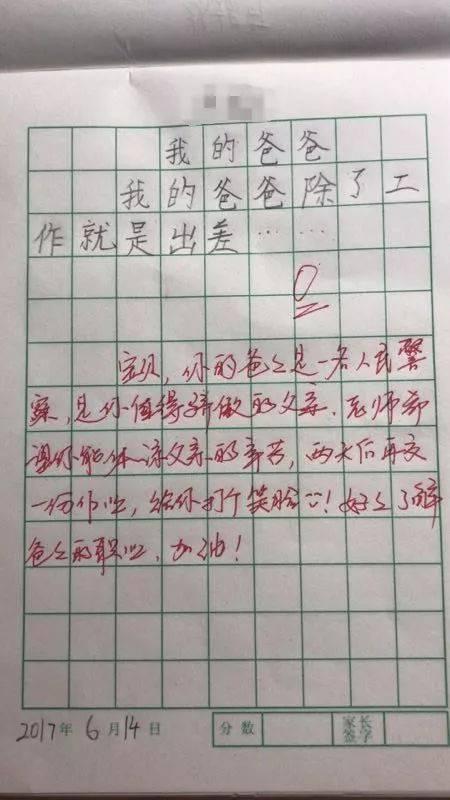 我的爸爸
我的爸爸除了工
作就是出差……
0
宝贝，你的爸爸是一名人民警
察，是你值得骄傲的父亲。老师希
望你能体谅父亲的辛苦，两天后再交
一份作业，给你打个笑脸！好好了解
爸爸的职业，加油！
2017年6月14日
分数
家长
签字